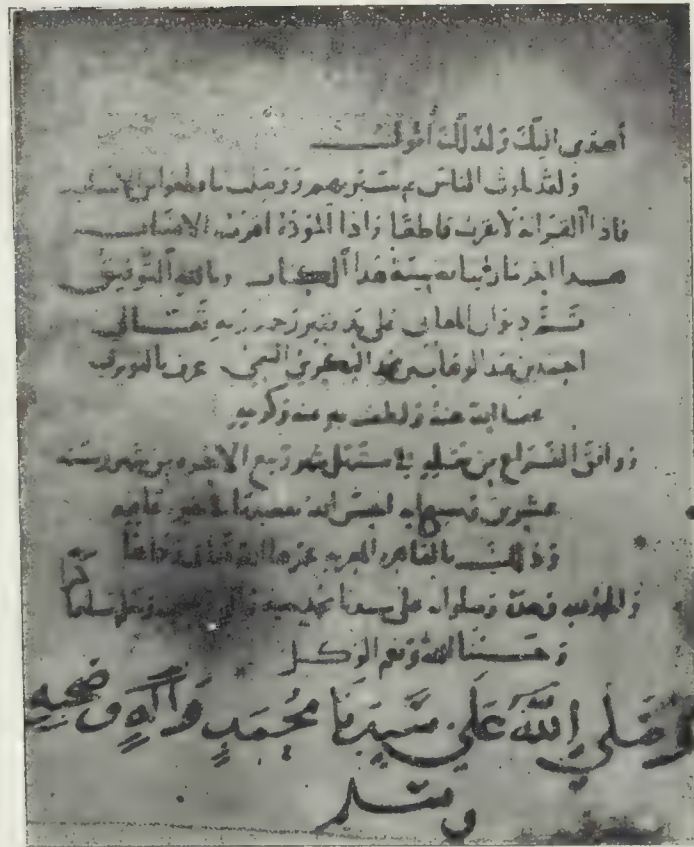 أهدى اليك ولذلك أقول
ولقد بلوت الناس ثم سبرتهم ووصلت ما قطعوا من الاسباب
فاذا القرابة لا تقرب قاطعا واذا المودة اقرب الانساب
هذا اخر ما رايناه بهيئة هذا الكتاب وبالله التوفيق
تم ديوان المعاني على يد فقير رحمة ربه تعالى
احمد بن عبد الوهاب بن البكري التيمي عرف بالنويري
عفا الله عنه ولطف به بمنه وكرمه
ووافق الفراغ من في مستهل شهر ربيع الاخره من شهور سنة
عشرين وسبعمايه الله
وذلك بالقاهرة المعزيه الله تعالى
والحمد لله وحده وصلواته على سيدنا محمد وسلم تسليما كثيرا
وحسبنا الله ونعم الوكيل
وصلى الله على سيدنا محمد وآله وصحبه
وسلم